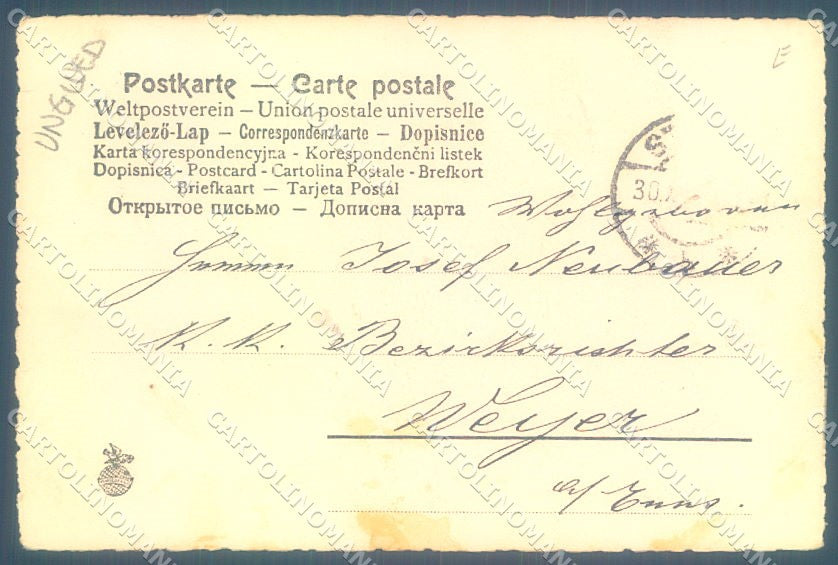 UNGUDED
E
Postkarte — Carte postale
Weltpostverein – Union postale universelle
Levelező-Lap – Correspondenzkarte – Dopisnice
Karta korespondencyjna - Korespondenčni listek
Dopisnica - Postcard - Cartolina Postale - Brefkort
Briefkaart — Tarjeta Postal
Открытое письмо — Дописна карта
Wohlgeboren
Herrn Josef Neubauer
K. K. Bezirksrichter
Weyer
a/ Enns.
30.
CARTOLINOMANIA